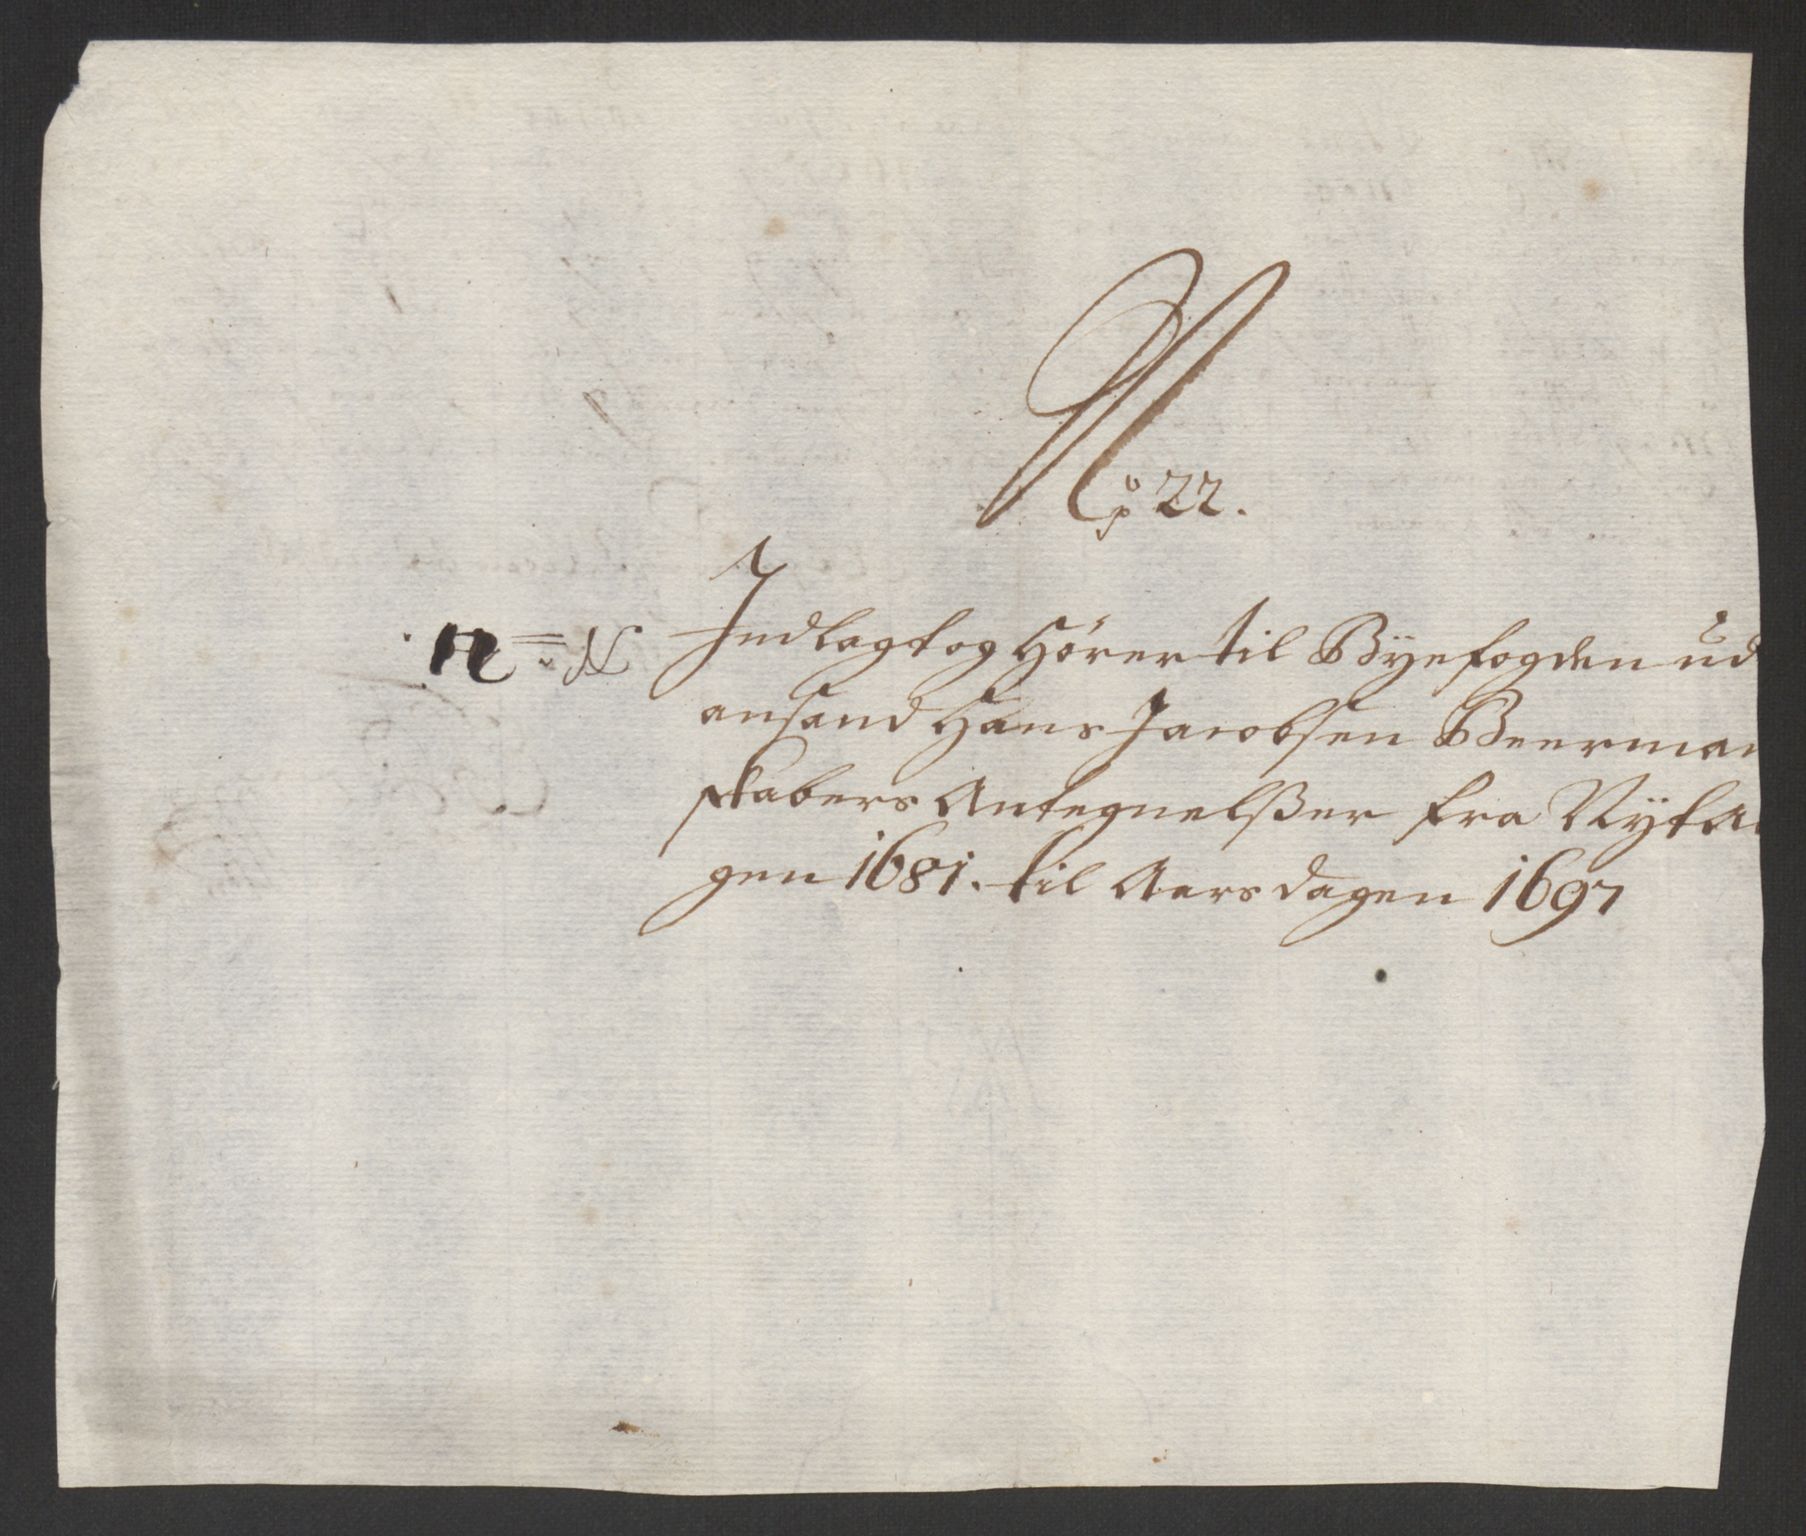 No 22.
Indlagt og Hörer til Bÿefogden ud
ansand Hans Jacobsen Beerman
skabers Antegnelsßer fra Nÿtaa
gen 1681. til Aarsdagen 1697